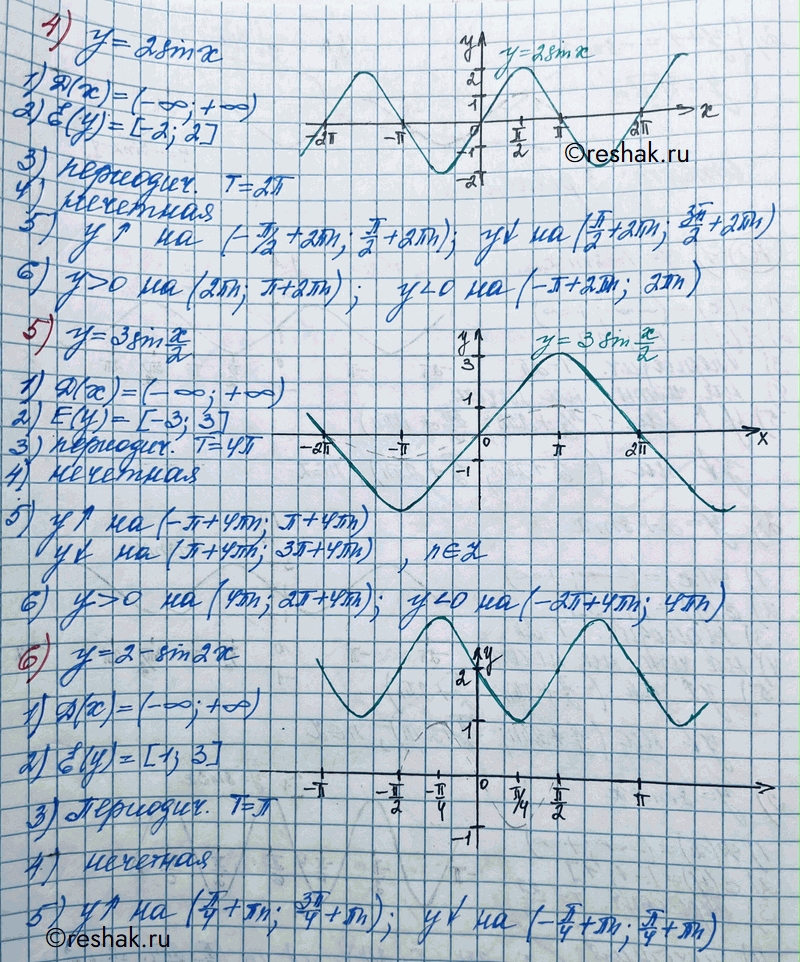 4) y = 2sinx
1) D(x) = (-∞; +∞)
2) E(y) = [-2; 2]
3) периодич. T = 2π
4) нечетная
5) y↑ на (-π/2 + 2πn; π/2 + 2πn); y↓ на (π/2 + 2πn; 3π/2 + 2πn)
6) y>0 на (2πn; π+2πn); y<0 на (-π+2πn; 2πn)
y
y=2sinx
2
1
-2π
-π
0
π/2
π
2π
x
-1
-2
©reshak.ru
5) y = 3sin x/2
1) D(x) = (-∞; +∞)
2) E(y) = [-3; 3]
3) периодич. T = 4π
4) нечетная
5) y↑ на (-π+4πn; π+4πn)
y↓ на (π+4πn; 3π+4πn), n∈Z
6) y>0 на (4πn; 2π+4πn); y<0 на (-2π+4πn; 4πn)
y
y = 3 sin x/2
3
1
-2π
-π
0
π
2π
x
-1
6) y = 2-sin2x
1) D(x) = (-∞; +∞)
2) E(y) = [1; 3]
3) Периодич. T = π
4) нечетная
5) y↑ на (π/4 + πn; 3π/4 + πn); y↓ на (-π/4 + πn; π/4 + πn)
y
2
1
-π
-π/2
-π/4
0
π/4
π/2
π
-1
©reshak.ru